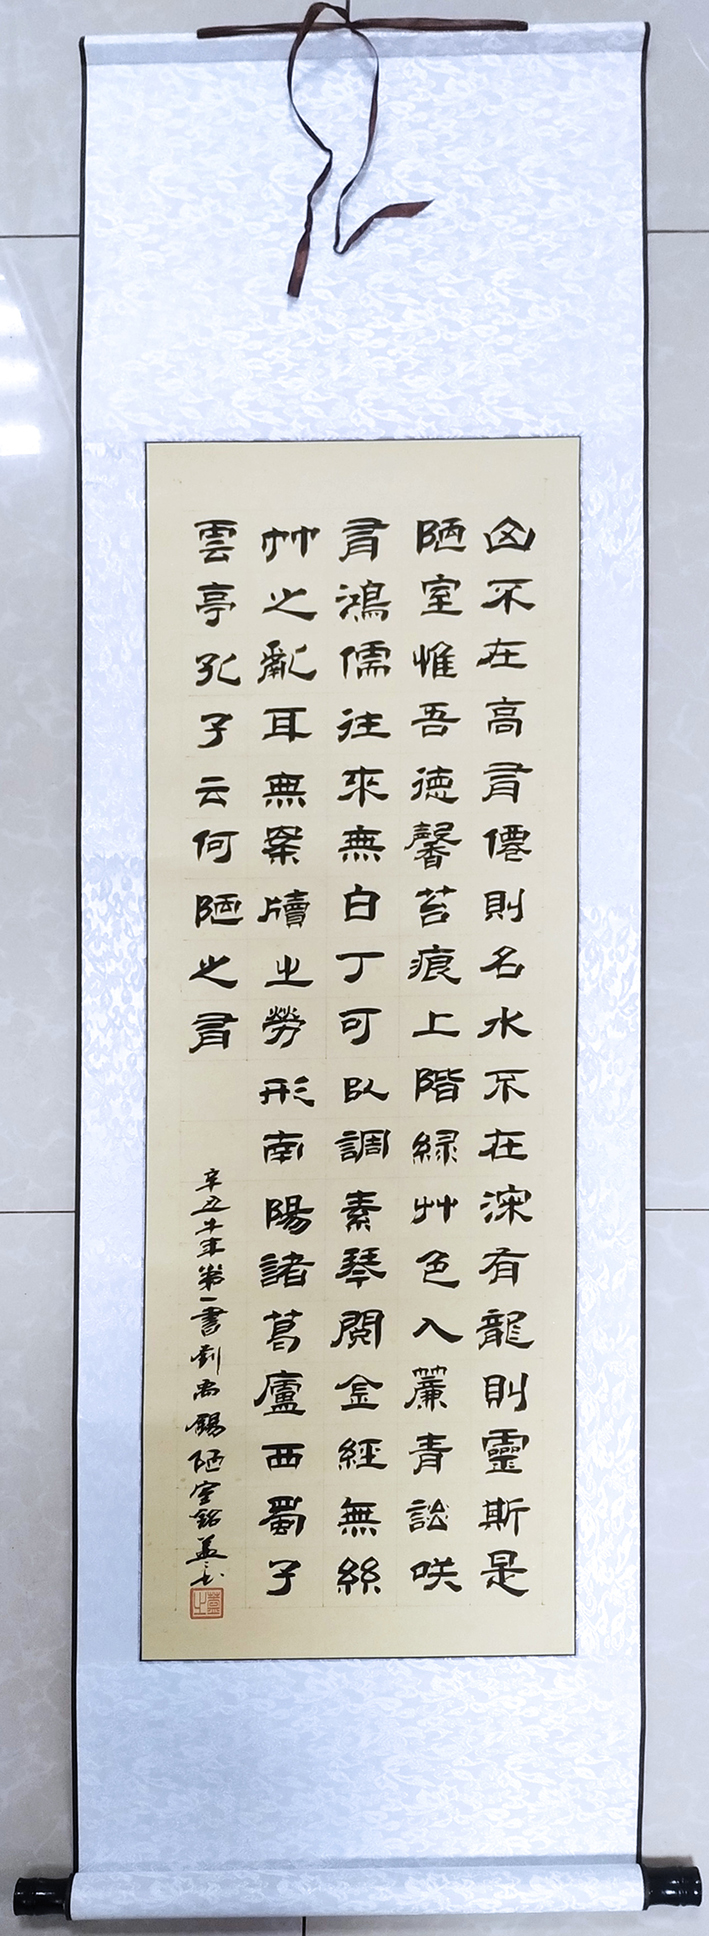 山不在高有僊則名水不在深有龍則靈斯是
陋室惟吾徳馨苔痕上階緑艸色入簾青談咲
有鴻儒往來無白丁可以調素琴閱金經無絲
竹之亂耳無案牘之勞形南陽諸葛廬西蜀子
雲亭孔子云何陋之有
辛丑牛年第一書劉禹錫陋室銘